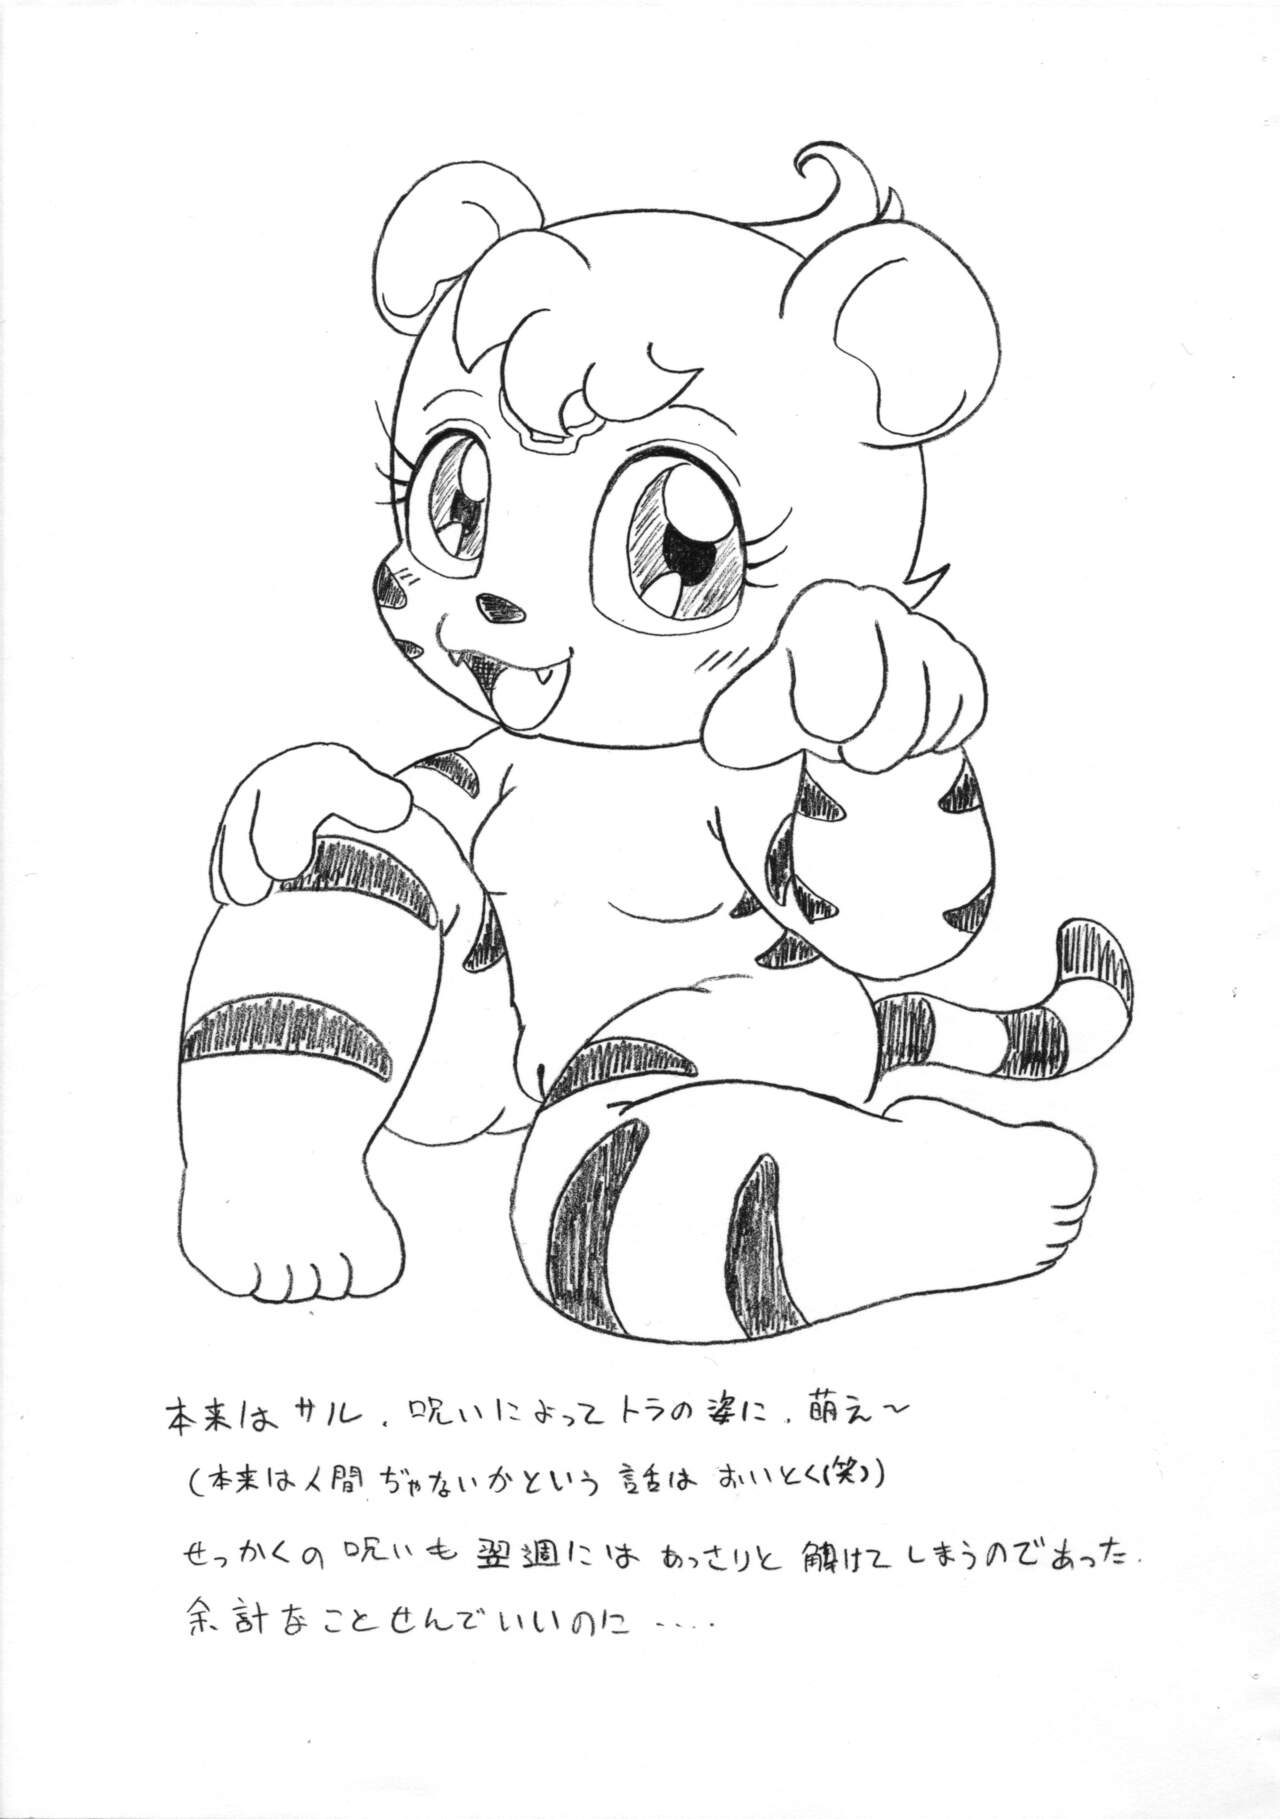 本来はサル、呪いによってトラの姿に、萌え〜
(本来は人間ぢゃないかという話はおいとく(笑))
せっかくの呪いも翌週にはあっさりと解けてしまうのであった.
余計なことせんでいいのに.....